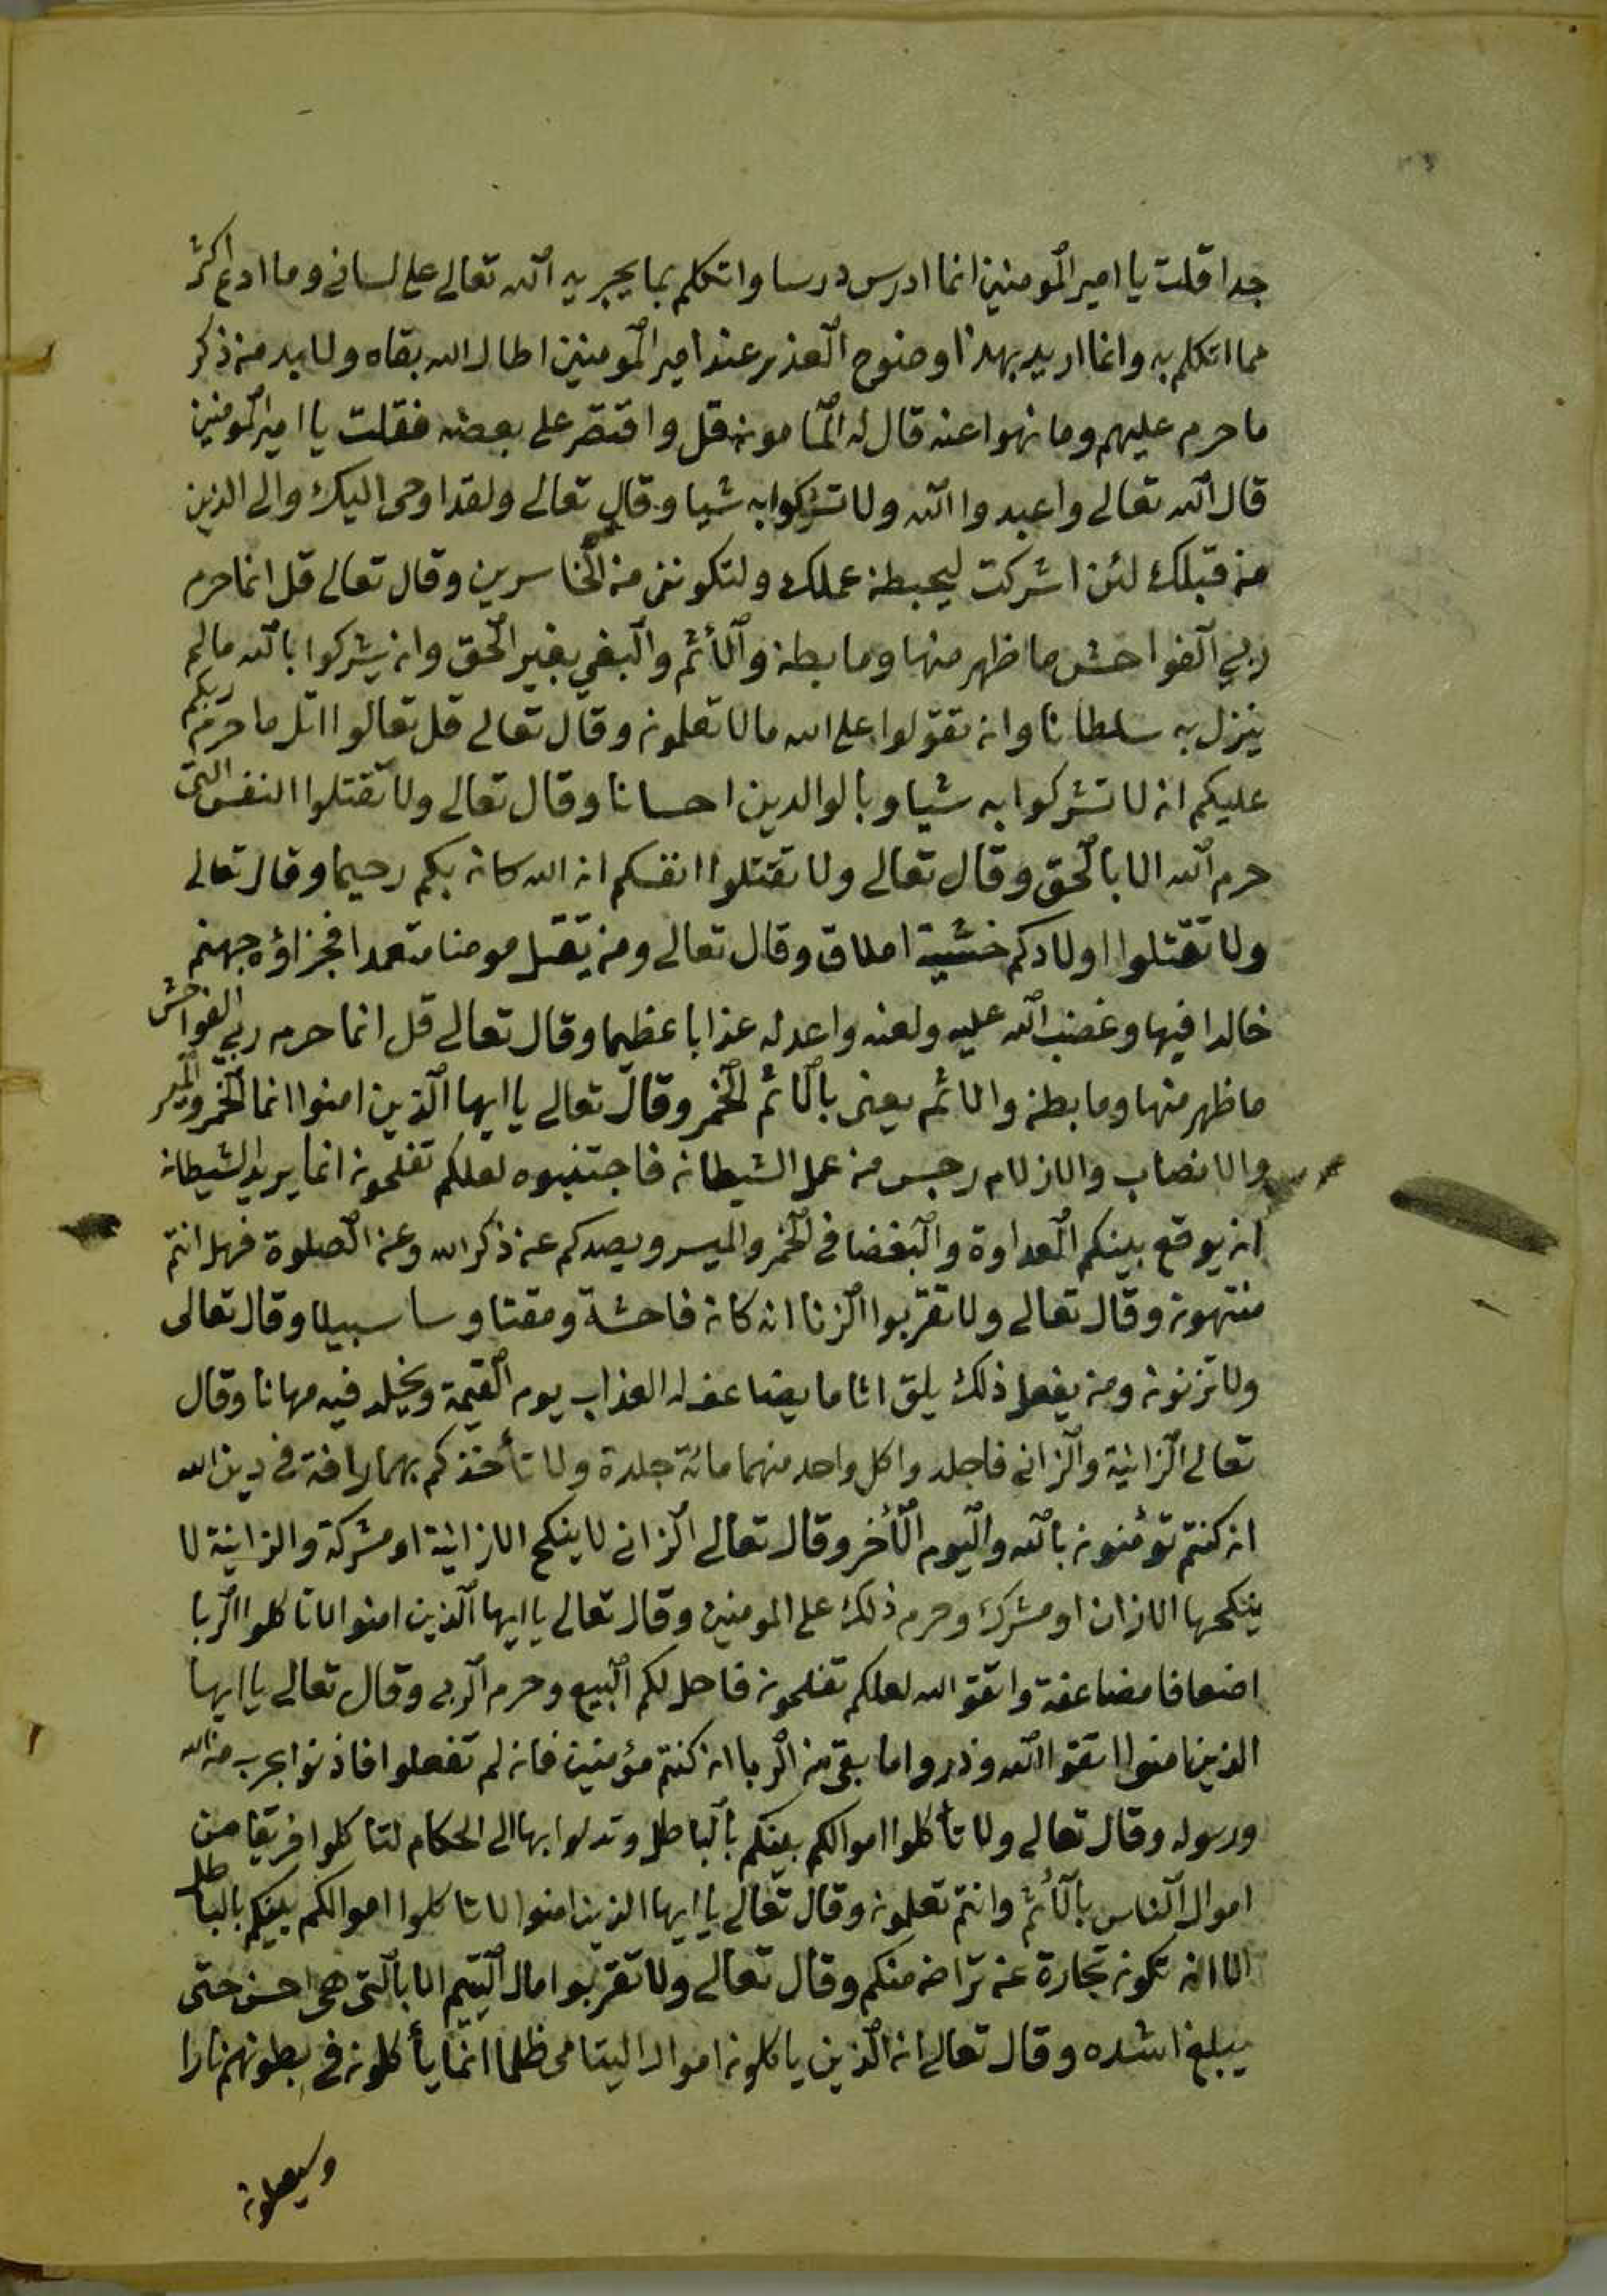 جدا قلت يا امير المومنين انما ادرس درسا واتكلم بما يجريه الله تعالى على لساني وما ادع اكثر
مما اتكلم به وانما اريد بهذا وضوح العذر عند امير المومنين اطال الله بقاه ولا بد من ذكر
ما حرم عليهم وما نهوا عنه قال له المامون قل واقتصر على بعضه فقلت يا امير المومنين
قال الله تعالى واعبدوا الله ولا تشركوا به شيا وقال تعالى ولقد اوحى اليك والى الذين
من قبلك لئن اشركت ليحبطن عملك ولتكونن من الخاسرين وقال تعالى قل انما حرم
ربي الفواحش ما ظهر منها وما بطن والأثم والبغي بغير الحق وان يشركوا بالله مالم
ينزل به سلطانا وان تقولوا على الله مالا تعلمون وقال تعالى قل تعالوا اتل ما حرم ربكم
عليكم ان لا تشركوا به شيا وبالوالدين احسانا وقال تعالى ولا تقتلوا النفس التى
حرم الله الا بالحق وقال تعالى ولا تقتلوا انفسكم ان الله كان بكم رحيما وقال تعالى
ولا تقتلوا اولادكم خشية املاق وقال تعالى ومن يقتل مومنا متعمدا فجزاؤه جهنم
خالدا فيها وغضب الله عليه ولعنه واعد له عذابا عظيما وقال تعالى قل انما حرم ربي الفواحش
ما ظهر منها وما بطن والاثم يعنى بالاثم الخمر وقال تعالى يا ايها الذين امنوا انما الخمر والميسر
والانصاب والازلام رجس من عمل الشيطان فاجتنبوه لعلكم تفلحون انما يريد الشيطان
ان يوقع بينكم العداوة والبغضا في الخمر والميسر ويصدكم عن ذكر الله وعن الصلوة فهل انتم
منتهون وقال تعالى ولا تقربوا الزنا انه كان فاحشة ومقتا وسا سبيلا وقال تعالى
ولا تزنون ومن يفعل ذلك يلق اثاما يضاعف له العذاب يوم القيمة ويخلد فيه مهانا وقال
تعالى الزانية والزانى فاجلدوا كل واحد منهما مائة جلدة ولا تأخذكم بهما رافة في دين الله
ان كنتم تؤمنون بالله واليوم الأخر وقال تعالى الزانى لا ينكح الا زانية او مشركة والزانية لا
ينكحها الا زان او مشرك وحرم ذلك على المومنين وقال تعالى يا ايها الذين امنوا لا تاكلوا الربا
اضعافا مضاعفة واتقوا الله لعلكم تفلحون فاحل لكم البيع وحرم الربى وقال تعالى يا ايها
الذين امنوا اتقوا الله وذروا ما بقي من الربا ان كنتم مؤمنين فان لم تفعلوا فاذنوا بحرب من الله
ورسوله وقال تعالى ولا تأكلوا اموالكم بينكم بالباطل وتدلوا بها الى الحكام لتاكلوا فريقا من
اموال الناس بالأثم وانتم تعلمون وقال تعالى يا ايها الذين امنوا لا تاكلوا اموالكم بينكم بالباطل
الا ان تكون تجارة عن تراض منكم وقال تعالى ولا تقربوا مال اليتيم الا بالتى هي احسن حتى
يبلغ اشده وقال تعالى ان الذين ياكلون اموال اليتامى ظلما انما يأكلون في بطونهم نارا
وسيصلون